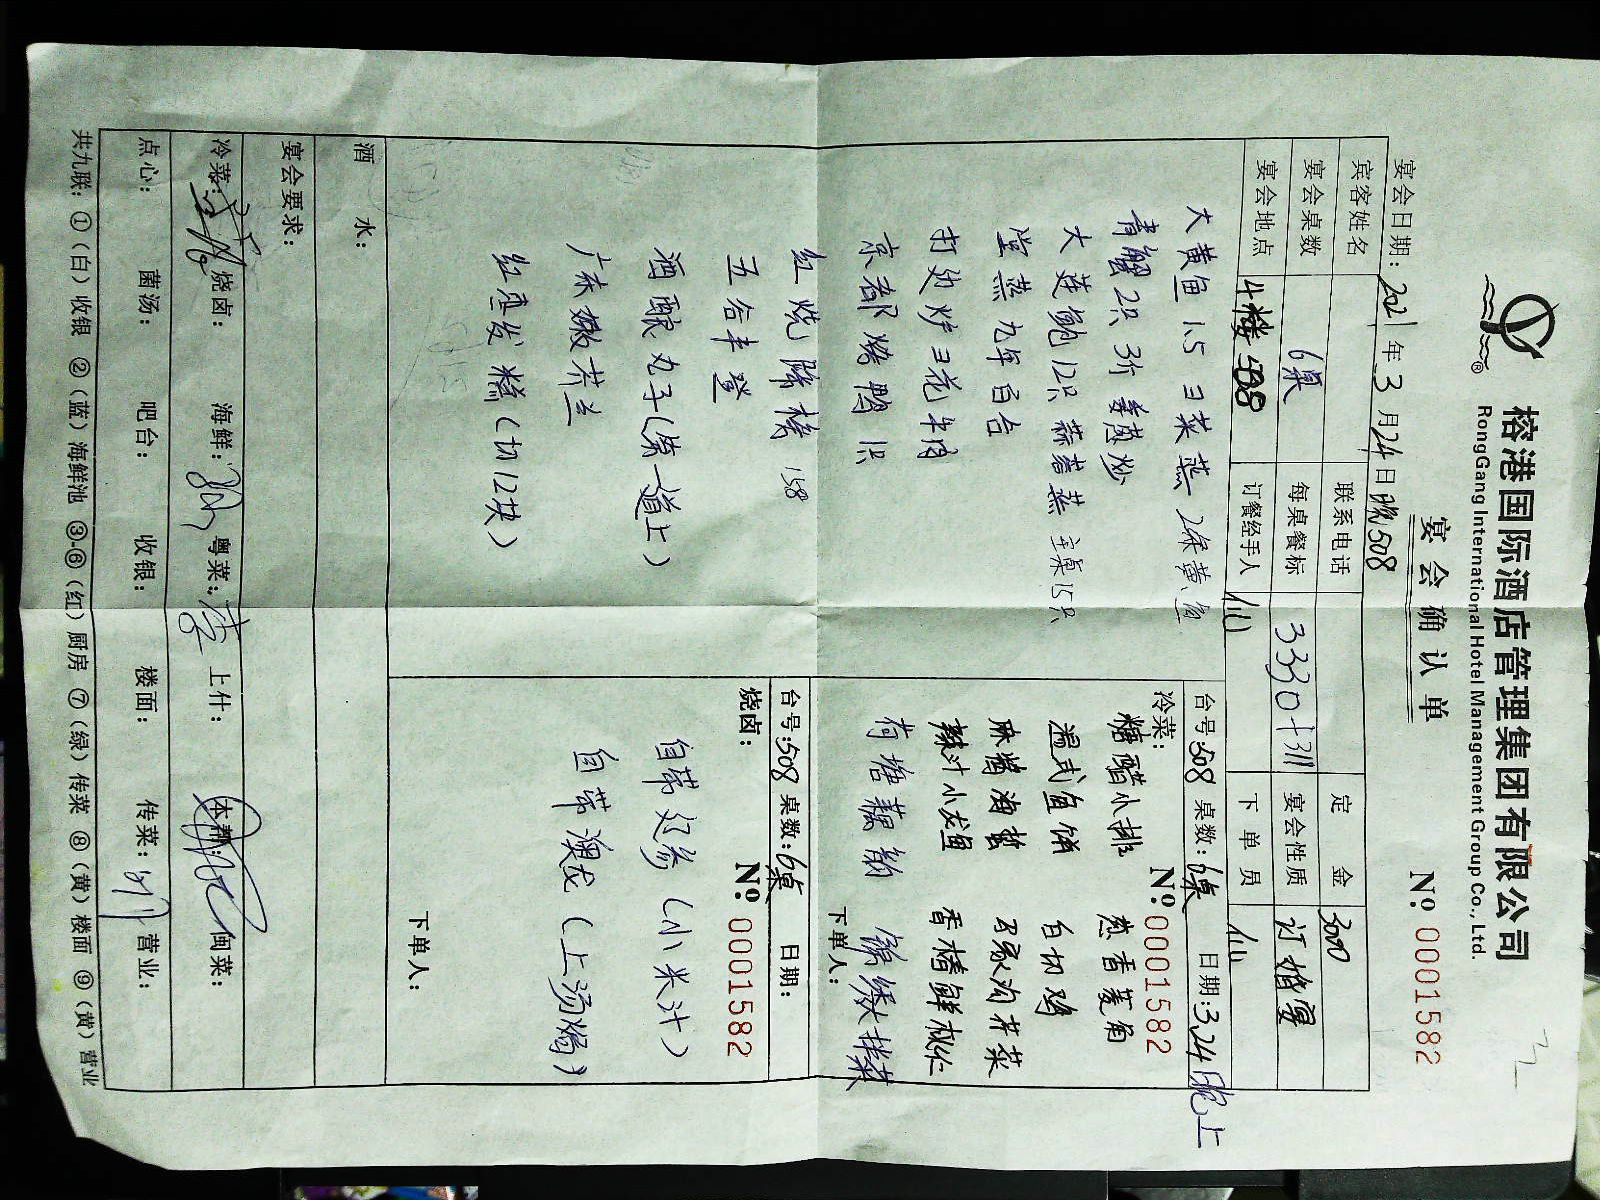 榕港国际酒店管理集团有限公司
RongGang International Hotel Management Group Co., Ltd.
宴会确认单
№: 00015​82
宴会日期: 2021年3月24日晚508
宾客姓名 联系电话 定金 3000
宴会桌数 6桌 每桌餐标 3330+311 宴会性质 订婚宴
宴会地点 4楼508 订餐经手人 下单员
大黄鱼1.5 彐菜蒸 2条黄鱼
青蟹2只 3斤 姜葱炒
大连鲍12只 蒜蓉蒸 主桌15只
堂蒸九年百合
打边炉彐花牛肉
京都烤鸭1只
红烧 158
五谷丰登
酒酿丸子(第一道上)
广东嫩芥兰
红枣发糕(切12块)
台号:508 桌数:6桌 日期:3.24晚上
冷菜: №: 00015​82
糖醋小排 葱香菱角
温式鱼饼 白切鸡
麻酱海蜇 马家沟芹菜
辣汁小龙鱼 香椿鲜桃仁
荷塘藕韵 锦绣大拌菜
下单人:
台号:508 桌数:6桌 日期:
烧卤: №: 00015​82
自带辽参(小米汁)
自带澳龙(上汤焗)
下单人:
酒水:
宴会要求:
冷菜: 烧卤: 海鲜: 粤菜: 上什: 本帮: 闽菜:
点心: 菌汤: 吧台: 收银: 楼面: 传菜: 营业:
共九联: ①(白)收银 ②(蓝)海鲜池 ③-⑥(红)厨房 ⑦(绿)传菜 ⑧(黄)楼面 ⑨(黄)营业